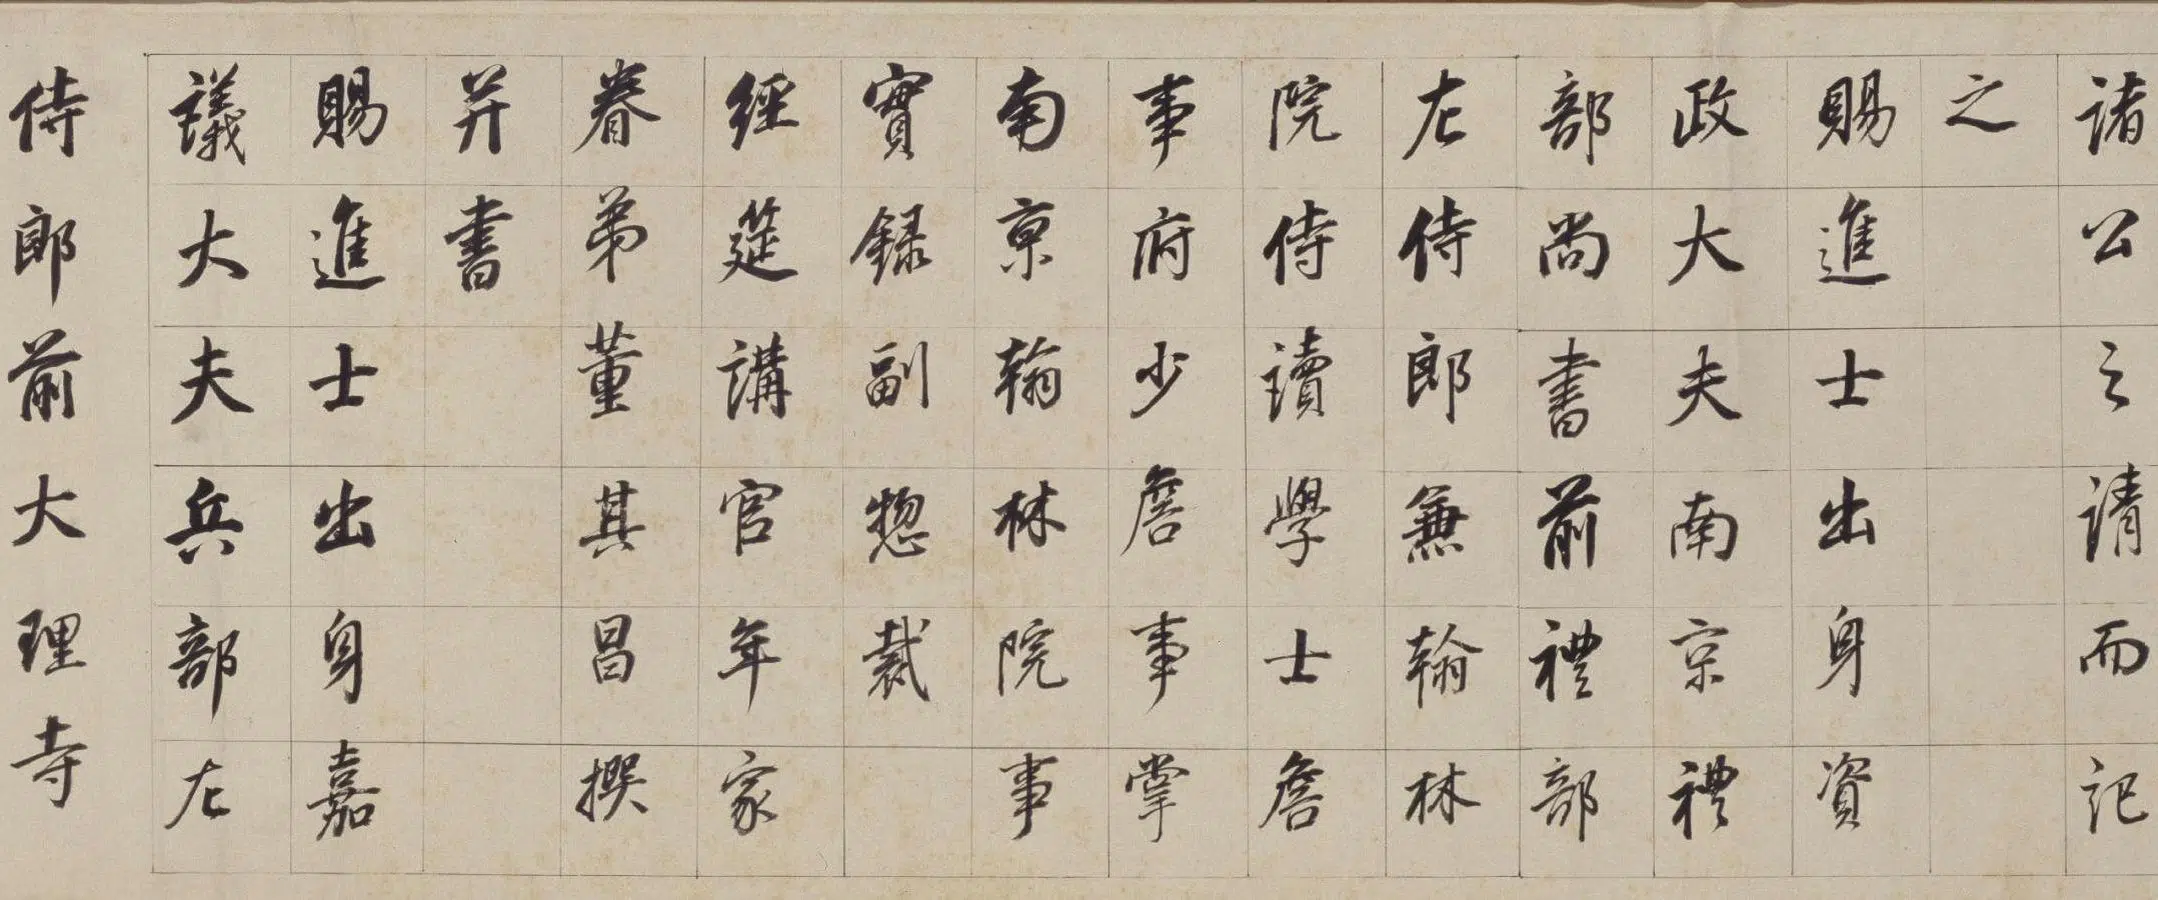 諸公之請而記
之
賜進士出身資
政大夫南京禮
部尚書前禮部
左侍郎兼翰林
院侍讀學士詹
事府少詹事掌
南京翰林院事
實録副惣裁
經筵講官年家
眷弟董其昌撰
并書
賜進士出身嘉
議大夫兵部左
侍郎前大理寺